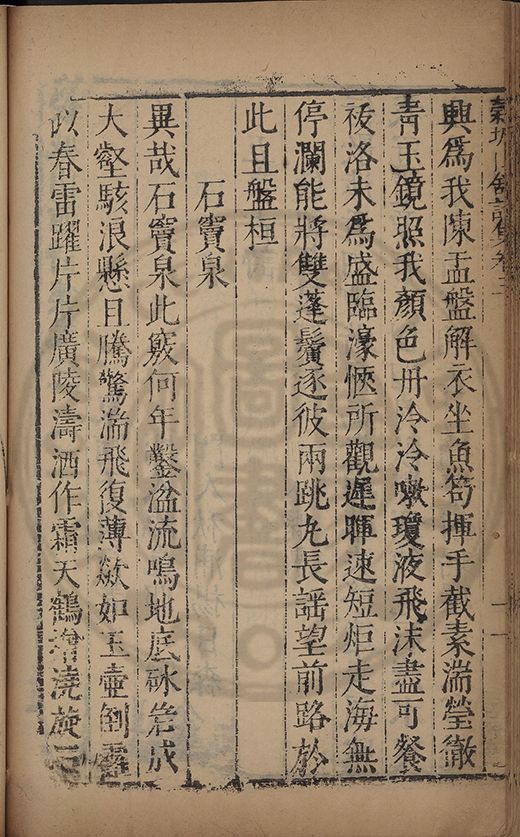 穀城山館詩集卷三
興為我陳孟盤解衣坐魚笱揮手截素湍瑩徹
青玉鏡照我顏色丹泠泠嗽瓊液飛沫盡可餐
祓洛未為盛臨濠愜所觀遲暉速短炬走海無
停瀾能將雙蓬鬢逐彼兩跳丸長謡望前路於
此且盤桓
石竇泉
異哉石竇泉此竅何年鑿湓流鳴地底砯岩成
大壑駭浪懸且騰驚湍飛復薄歘如玉壺倒
以春雷躍片片廣陵濤洒作霜天鶴澆旋